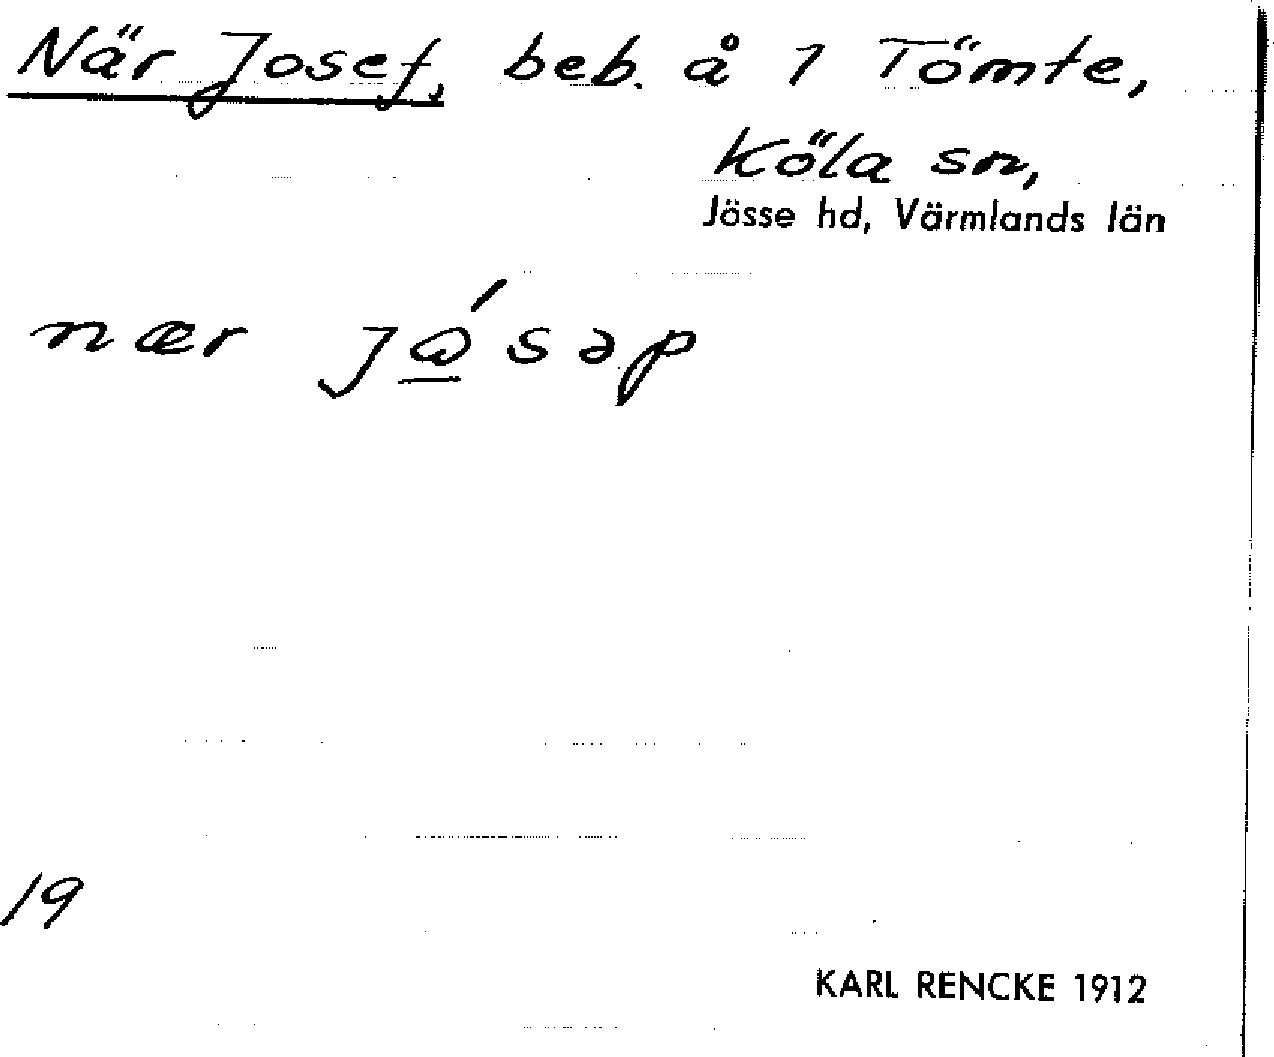 När Josef, beb. å 1 Tömte,
Köla sn,
Jösse hd, Värmlands län
nær jɷ̱́səp
19
KARL RENCKE 1912